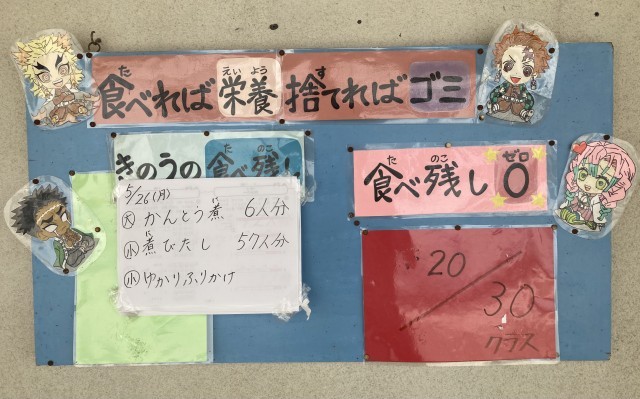 食べれば栄養 捨てればゴミ
きのうの食べ残し
5/26(月)
大 かんとう煮 6人分
小 煮びたし 57人分
小 ゆかりふりかけ
食べ残し0
20/30
クラス